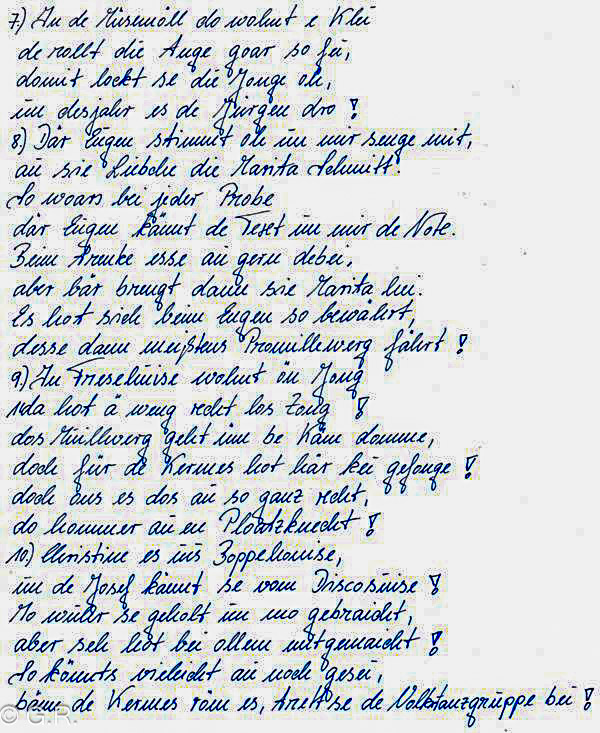 7.) In de Müsemöll do wohnt e Klü
de rollt die Auge goar so fü,
domit lockt se die Jonge oh,
ün desjahr es de Jürgen dro !
8.) Dar Eugen stimmt oh ün mir senge mit,
aü sie Liebche die Marita Schmitt.
So woars bei jeder Probe
dar Eugen kännt de Text ün mir de Note.
Beim Trenke esse aü gern debei,
aber bär brengt dann sie Marita hei.
Es hot sich beim Eugen so bewährt,
desse dann meistens Promillewerg fährt !
9.) In Friesehüise wohnt ön Jong
da hot ä weng recht los Zong !
das Müllwerg geht üm be Käm domme,
doch für de Kermes hot här kei gefonge !
doch ons es dos aü so ganz recht,
do hommer aü en Ploatzknecht !
10.) Christine es üis Boppehouise,
ün de Josef kännt se vom Discosüise !
Mo wüllr se geholt ün mo gebraicht,
aber seh hot bei ollem mitgemaicht !
So könnts vieleicht aü noch gesei,
bänn de Kermes röm es, trett se de Volkstanzgrüppe bei !
© G.R.